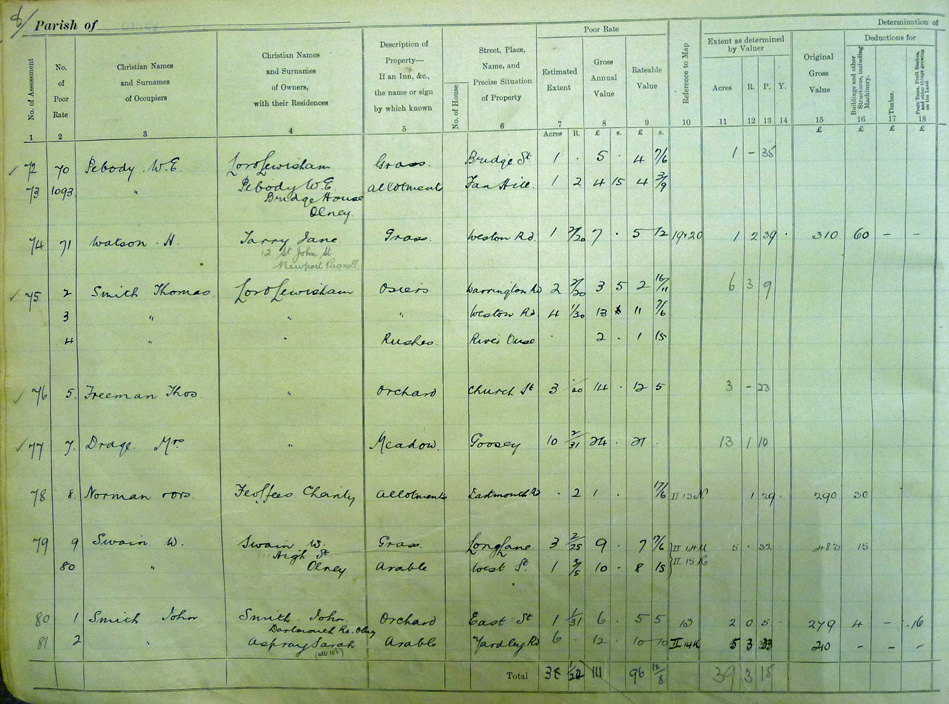 Parish of Olney
Determination of
No. of Assessment
No. of Poor Rate
Christian Names and Surnames of Occupiers
Christian Names and Surnames of Owners, with their Residences
Description of Property— If an Inn, &c., the name or sign by which known
No. of House
Street, Place, Name, and Precise Situation of Property
Poor Rate
Estimated Extent
Gross Annual Value
Rateable Value
Reference to Map
Extent as determined by Valuer
Acres R. P. Y.
Original Gross Value
Deductions for
Buildings and other Structures, including Machinery.
Timber.
Fruit Trees, Fruit Bushes, and other things growing on the Land.
1 2 3 4 5 6 7 8 9 10 11 12 13 14 15 16 17 18
Acres R. £ s. £ s. £ £ £ £
72 70 Pebody W.E Lord Lewisham Grass Bridge St 1 · 5 · 4 7/6 1 - 35
73 1093 " Pebody W.E allotment Fan Hill 1 2 4 15 4 3/9
Bridge House
Olney
74 71 Watson H. Tarry Jane Grass Weston Rd 1 7 · 5 12 19·20 1 2 39 · 310 60 - -
12 St John St
Newport Pagnell
75 2 Smith Thomas Lord Lewisham Osiers Warrington Rd 2 3 5 2 6 3 9
3 " " " Weston Rd 4 1/30 13 11 7/6
4 " " Rushes River Ouse 2 · 1 15
76 5 Freeman Thos " Orchard Church St 3 14 · 12 5 3 - 23
77 7 Drage Mrs " Meadow Goosey 10 2/31 24 · 21 · 13 1 10
78 8 Norman Feoffees Charity Allotments Dartmouth Rd · 2 1 · 17/6 1 29 · 290 30
79 9 Swain W. Swain W. Grass Long Lane 3 2/25 9 · 7 7/6 II 14 5 · 32 483 15
High St
80 " Olney Arable West St. 1 3/5 10 · 8 15 II 15
80 1 Smith John Smith John Orchard East St 1 1/31 6 · 5 5 10 2 0 5 · 279 4 - 16
Dartmouth Rd. Olney
81 2 " Aspray Sarah Arable Yardley Rd 6 · 12 · 10 10 II 14 5 3 33 210 - - -
Total 38 111 96 12/8 39 3 15